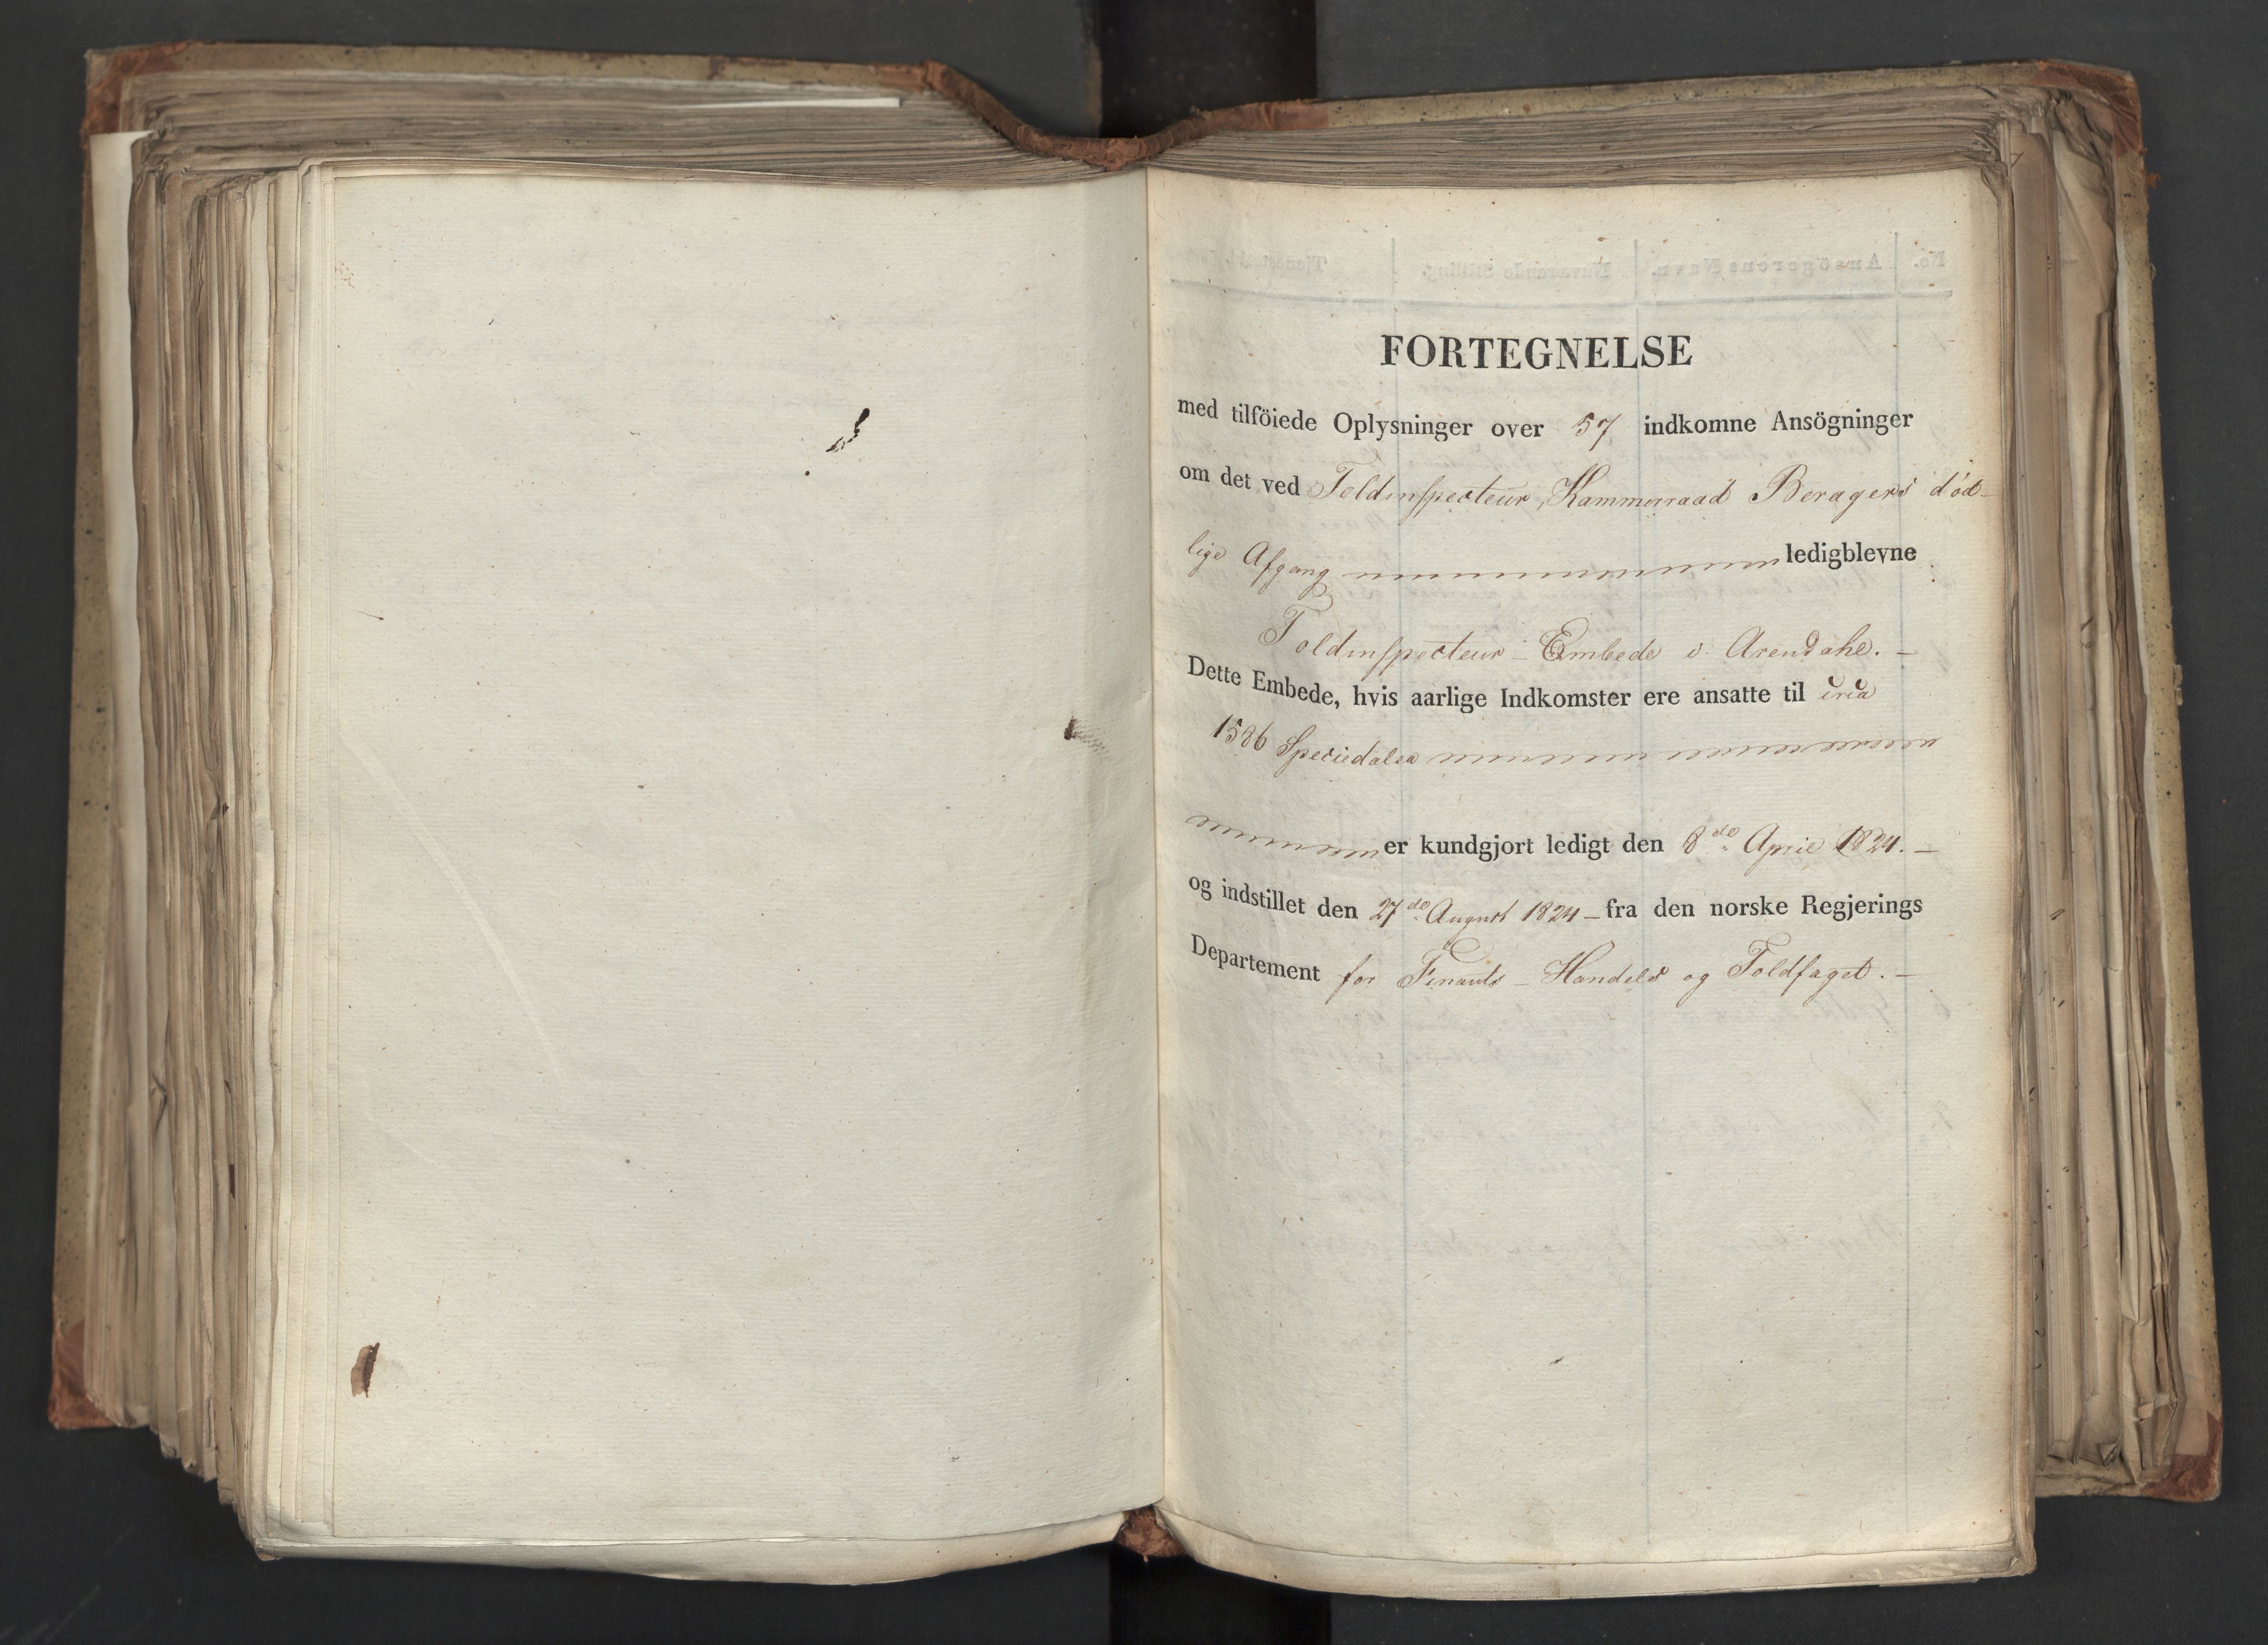 FORTEGNELSE
med tilföiede Oplysninger over 57 indkomne Ansögninger
om det ved Toldinspecteur, Kammerraad Beragers död-
lige Afgang ledigblevne
Toldinspecteur-Embede i Arendahl. -
Dette Embede, hvis aarlige Indkomster ere ansatte til circa
1586 Speciedaler
er kundgjort ledigt den 8de April 1824. -
og indstillet den 27de August 1824 - fra den norske Regjerings
Departement for Finants- Handels og Toldfaget. -